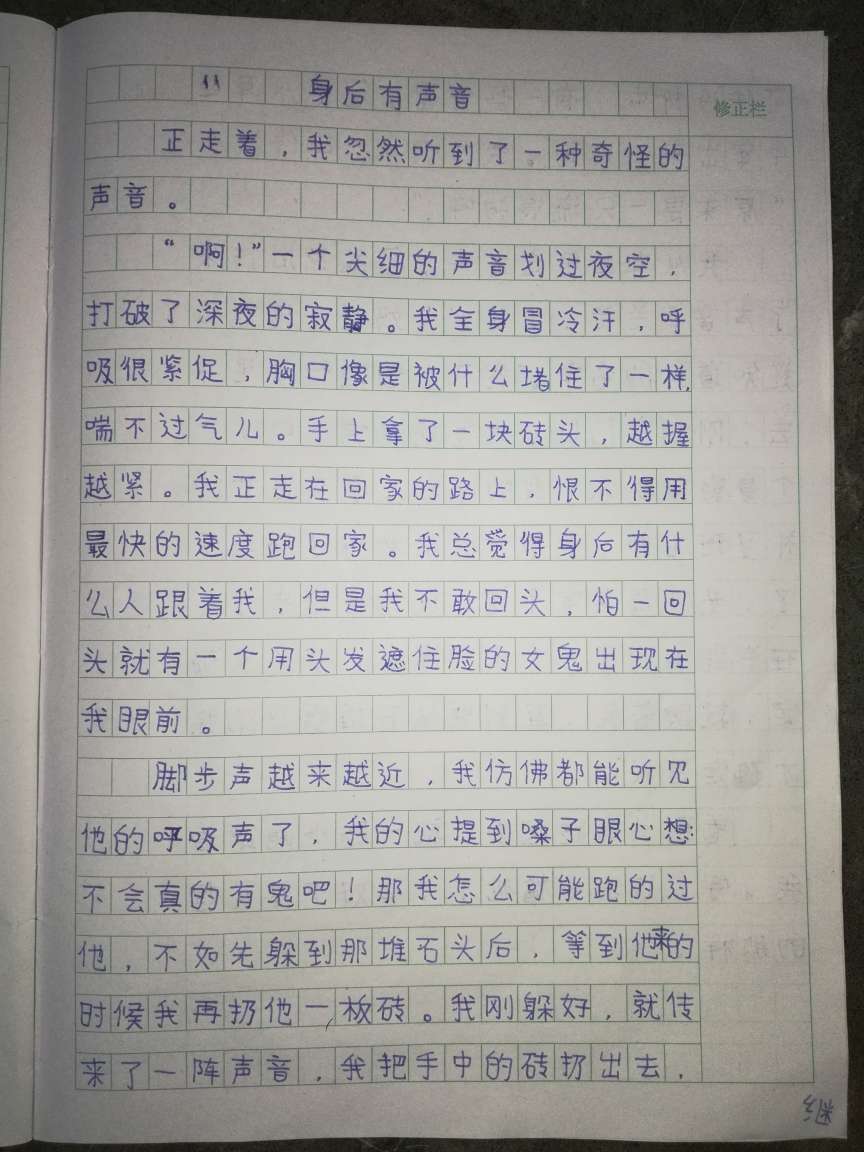 11 身后有声音
修正栏
正走着，我忽然听到了一种奇怪的
声音。
“啊！”一个尖细的声音划过夜空，
打破了深夜的寂静。我全身冒冷汗，呼
吸很紧促，胸口像是被什么堵住了一样，
喘不过气儿。手上拿了一块砖头，越握
越紧。我正走在回家的路上，恨不得用
最快的速度跑回家。我总觉得身后有什
么人跟着我，但是我不敢回头，怕一回
头就有一个用头发遮住脸的女鬼出现在
我眼前。
脚步声越来越近，我仿佛都能听见
他的呼吸声了，我的心提到嗓子眼心想：
不会真的有鬼吧！那我怎么可能跑的过
他，不如先躲到那堆石头后，等到他来的
时候我再扔他一板砖。我刚躲好，就传
来了一阵声音，我把手中的砖扔出去，
继